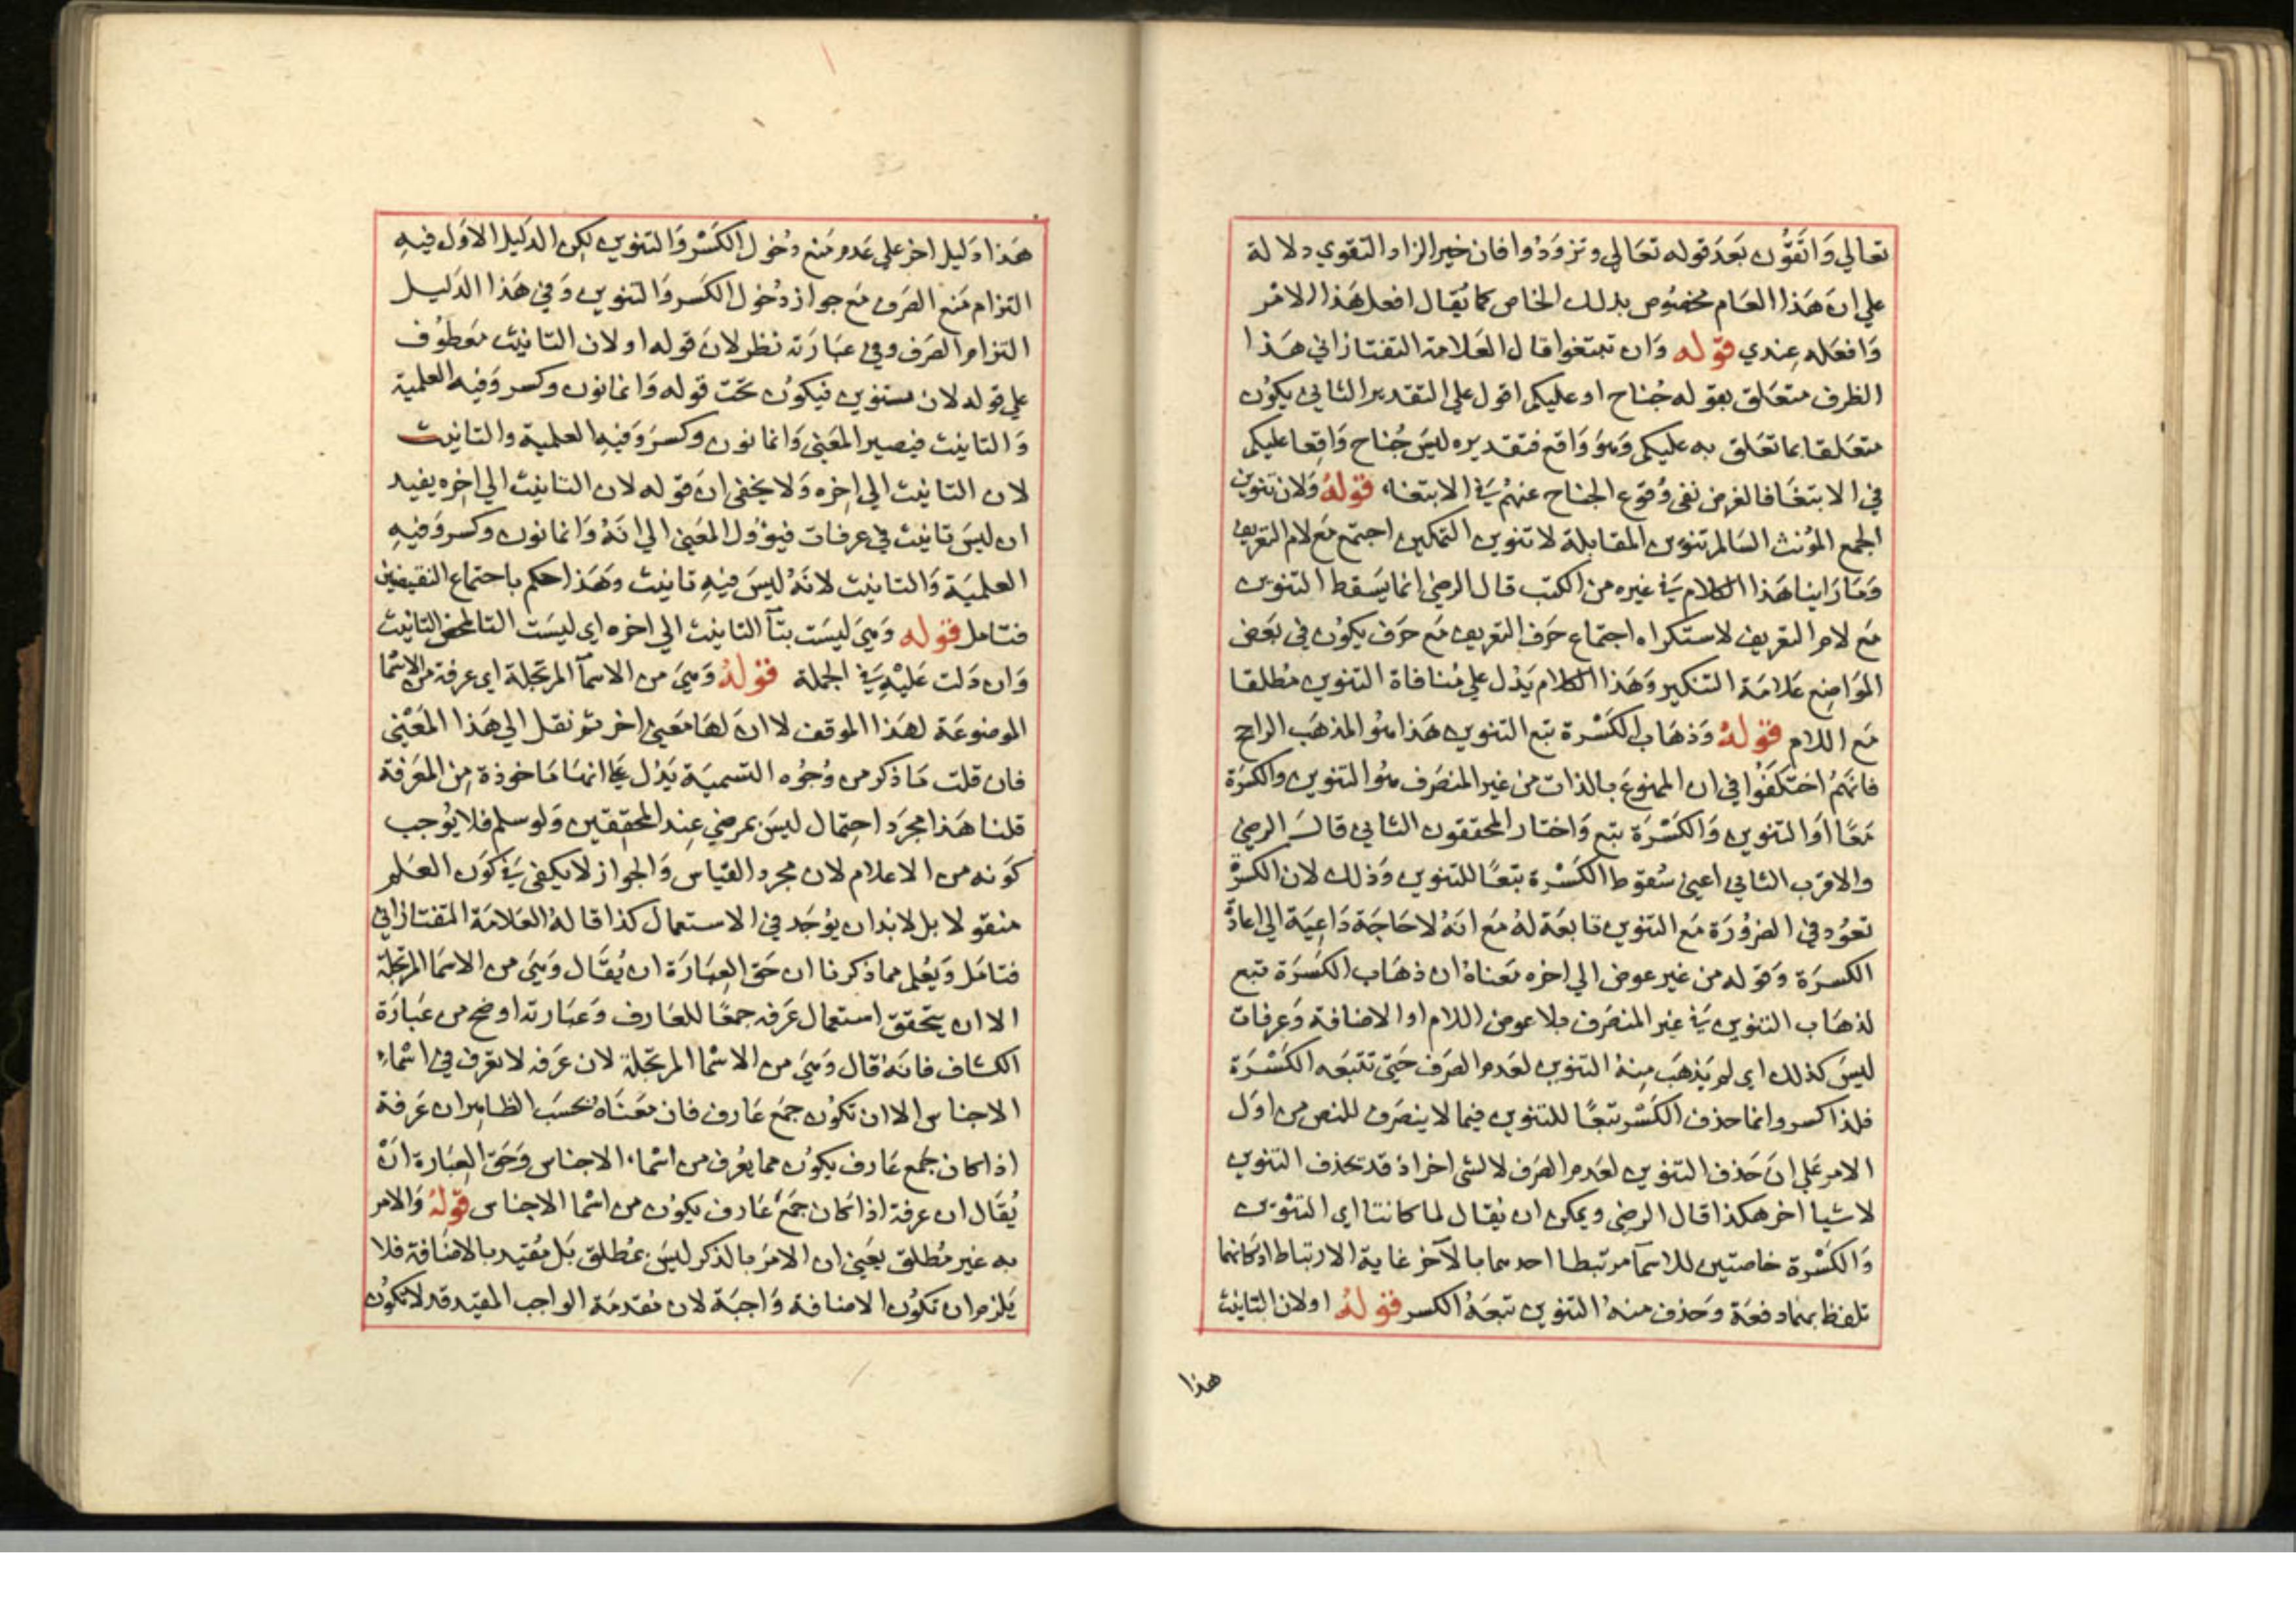 تعالي وَاتقُون بَعدَ قوله تعَالي وتزوَدُوا فان خير الزاد التقوي دلالة
علي ان هَذا العَام مخصُوص بذلك الخاص كما يُقَال افعل هَذا الامر
وَافعَله عِندي قوله وَان تبتغوا قال العَلامة التفتازاني هَذا
الظرف متعَلق بقوله جُناح او عليكم اقول علي التقدير الثاني يكوُن
متعَلقا بما تعَلق به عليكم وَهوَ وَاقع فتقديره ليسَ جُناح وَاقِعا عليكم
في الابتغَا فالغرض نفي وُقوع الجناح عنهُم في الابتغاء قوله وَلان تنوين
الجمع المؤنث السَالم تنوين المقابلة لا تنوين التمكين اجتمع مَع لام التعريف
وَمَا رَاينا هَذا الكلام في غيره من الكتب قال الرضي انما يَسقط التنوين
مَع لام التعريف لاستكراه اجتماع حَرف التعريف مَع حَرف يكوُن في بَعض
المَوَاضِع عَلامَة التنكير وَهَذا الكلام يَدُل علي مُنافاة التنوين مُطلقا
مَع اللام قوله وَذهَاب الكَسْرة تبع التنوين هَذا هُو المذهَب الراجح
فانهُم اختَلَفُوا في ان الممنوع بالذات من غير المنصَرف هُو التنوين والكسرَة
مَعًا اوَ التنوين وَالكَسْرَة تبع وَاختار المحققون الثاني قالَ الرضي
والاقرَب الثاني اعني سُقوط الكَسْرة تبعًا للتنوين وَذلك لان الكسرة
تعوُد في الضرُورَة مَع التنوين تابعَة لهُ مَع انهُ لاحَاجَة دَاعِيَة الي اعادة
الكسرَة وَقوله من غير عوض الي اخره مَعناهُ ان ذهَاب الكَسْرَة تبع
لذهَاب التنوين في غير المنصَرف بلا عوض اللام او الاضافة وَعرفات
ليسَ كذلك اي لم يَذهَب مِنهُ التنوين لعَدم الصَرف حَتي تتبَعه الكَسْرَة
فلذا كسر وانما حذف الكَسْر تبعًا للتنوين فيما لا ينصَرف للنص من اوَل
الامر عَلي انَ حَذف التنوين لعَدم الصَرف لا لشي اخر اذ قد تحذف التنوين
لاشيا اخر هكذا قال الرضي ويمكن ان يُقال لما كانتا اي التنوين
وَالكَسْرة خاصتين للاسمآ مرتبطا احدهما بالآخر غاية الارتباط او كانهما
تلفظ بهما دفعَة وَحَذف منهُ التنوين تبعَهُ الكسر قولهُ اولان التانيث
هذا
هَذا دَليل اخر علي عَدم مَنع دُخول الكَسْر وَالتنوين لكن الدَليل الاوَل فيهِ
التزام مَنع الصَرف مَع جواز دُخول الكَسر وَالتنوين وَفي هَذا الدَليل
التزام الصَرف وفي عبَارَته نظر لانَ قوله اولان التانيث مَعطوُف
علي قوله لان تنوين فيكوُن تحَت قوله وَانما نون وكسر وَفيه العلمية
وَالتانيث فيصير المعَني وَانما نون وكسرَ وَفيهِ العلمية والتانيث
لان التانيث الي اخِره وَلا يخفي انَ قوله لان التانيث الي اخِره يفيد
ان ليسَ تانيث في عرفات فيؤوُل المعَني الي انَهُ وَانما نون وكسر وَفيهِ
العلميَة وَالتانيث لانَهُ ليسَ فيهِ تانيث وهَذا حكم باجتماع النقيضين
فتامل قوله وَهيَ ليسَت بتآ التانيث الي اخره اي ليسَت التا لمحض التانيث
وَان دَلت عَليْهِ في الجملة قولهُ وَهيَ من الاسمآ المرتجلة اي عرفة من الاسما
الموضوعَة لهَذا الموقف لا انَ لهَا مَعنيً اخر ثم نقل الي هَذا المَعْني
فان قلت مَا ذكر من وُجُوه التسميَة يَدُل علي انهَا مَاخوذة مِن المَعَرفة
قلنا هَذا مجرَد احِتمال ليسَ بمرضي عِند المحققين وَلو سلم فلا يوُجب
كوَنه من الاعلام لان مجرد القيَاس وَالجواز لا يكفي في كوَن العَلم
منقولا بل لابُد ان يوُجَد في الاستعمال كذا قالهُ العَلامَة التفتازاني
فتامَل وَيَعُلم مما ذكرنا ان حَق العبَارَة ان يُقَال وَهيَ من الاسمَا المرتجلة
الا ان يتحقق استعمال عَرفه جمعًا للعَارف وَعبَارته اوضح من عبَارَة
الكشاف فانَهُ قال وَهيَ من الاسمَا المرتجلة لان عَرفه لا تعَرف في اسْماء
الاجناس الا ان تكوُن جمَع عَارف فان مَعنَاهُ بحسَب الظاهِر ان عَرفة
اذا كان جمع عَارف يكوُن مما يعُرف من اسْماء الاجناس وَحَق العِبَارة انَ
يُقَال ان عرفة اذا كان جَمع عَارف يكوُن من اسْما الاجناس قولهُ وَالامر
به غير مُطلق يعَني ان الامَر بالذكر ليسَ بمُطلق بَل مُقيد بالاضَافة فلا
يَلزم ان تكوُن الاضافة وَاجبَة لان مُقدمَة الواجب المقيَد قد لا تكوُن